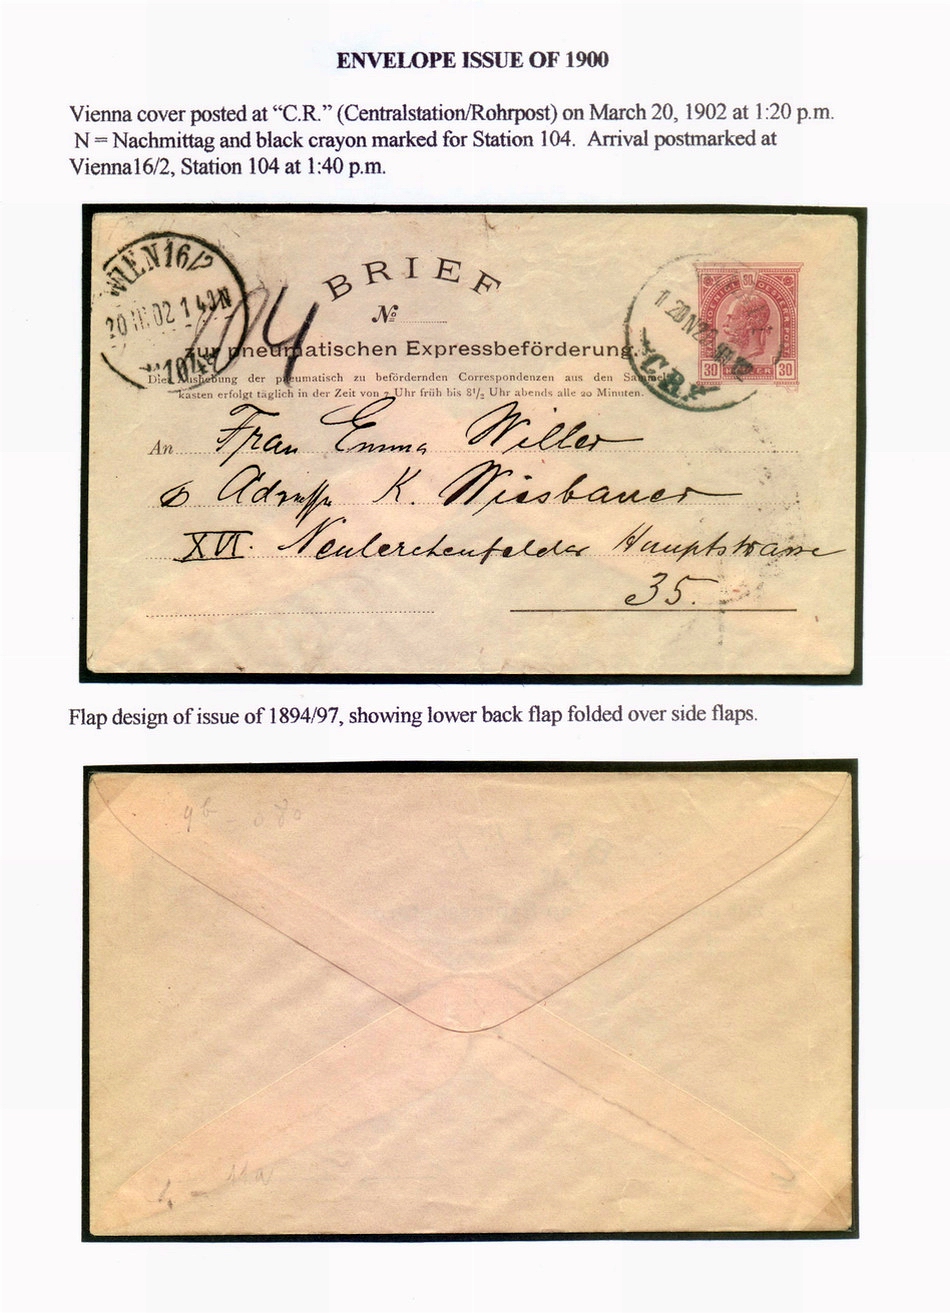 ENVELOPE ISSUE OF 1900
Vienna cover posted at “C.R.” (Centralstation/Rohrpost) on March 20, 1902 at 1:20 p.m.
N = Nachmittag and black crayon marked for Station 104. Arrival postmarked at
Vienna16/2, Station 104 at 1:40 p.m.
WIEN 16/2
20 III 02 1 40N
*104*
104
BRIEF
№
zur pneumatischen Expressbeförderung.
Die Aushebung der pneumatisch zu befördernden Correspondenzen aus den Sammel-
kasten erfolgt täglich in der Zeit von 7 Uhr früh bis 8½ Uhr abends alle 20 Minuten.
1 20N20 III 02
*C.R.*
30 30
An Frau Emma Willer
Adresse K. Wiesbauer
XVI. Neulerchenfelder Hauptstrasse
35.
Flap design of issue of 1894/97, showing lower back flap folded over side flaps.